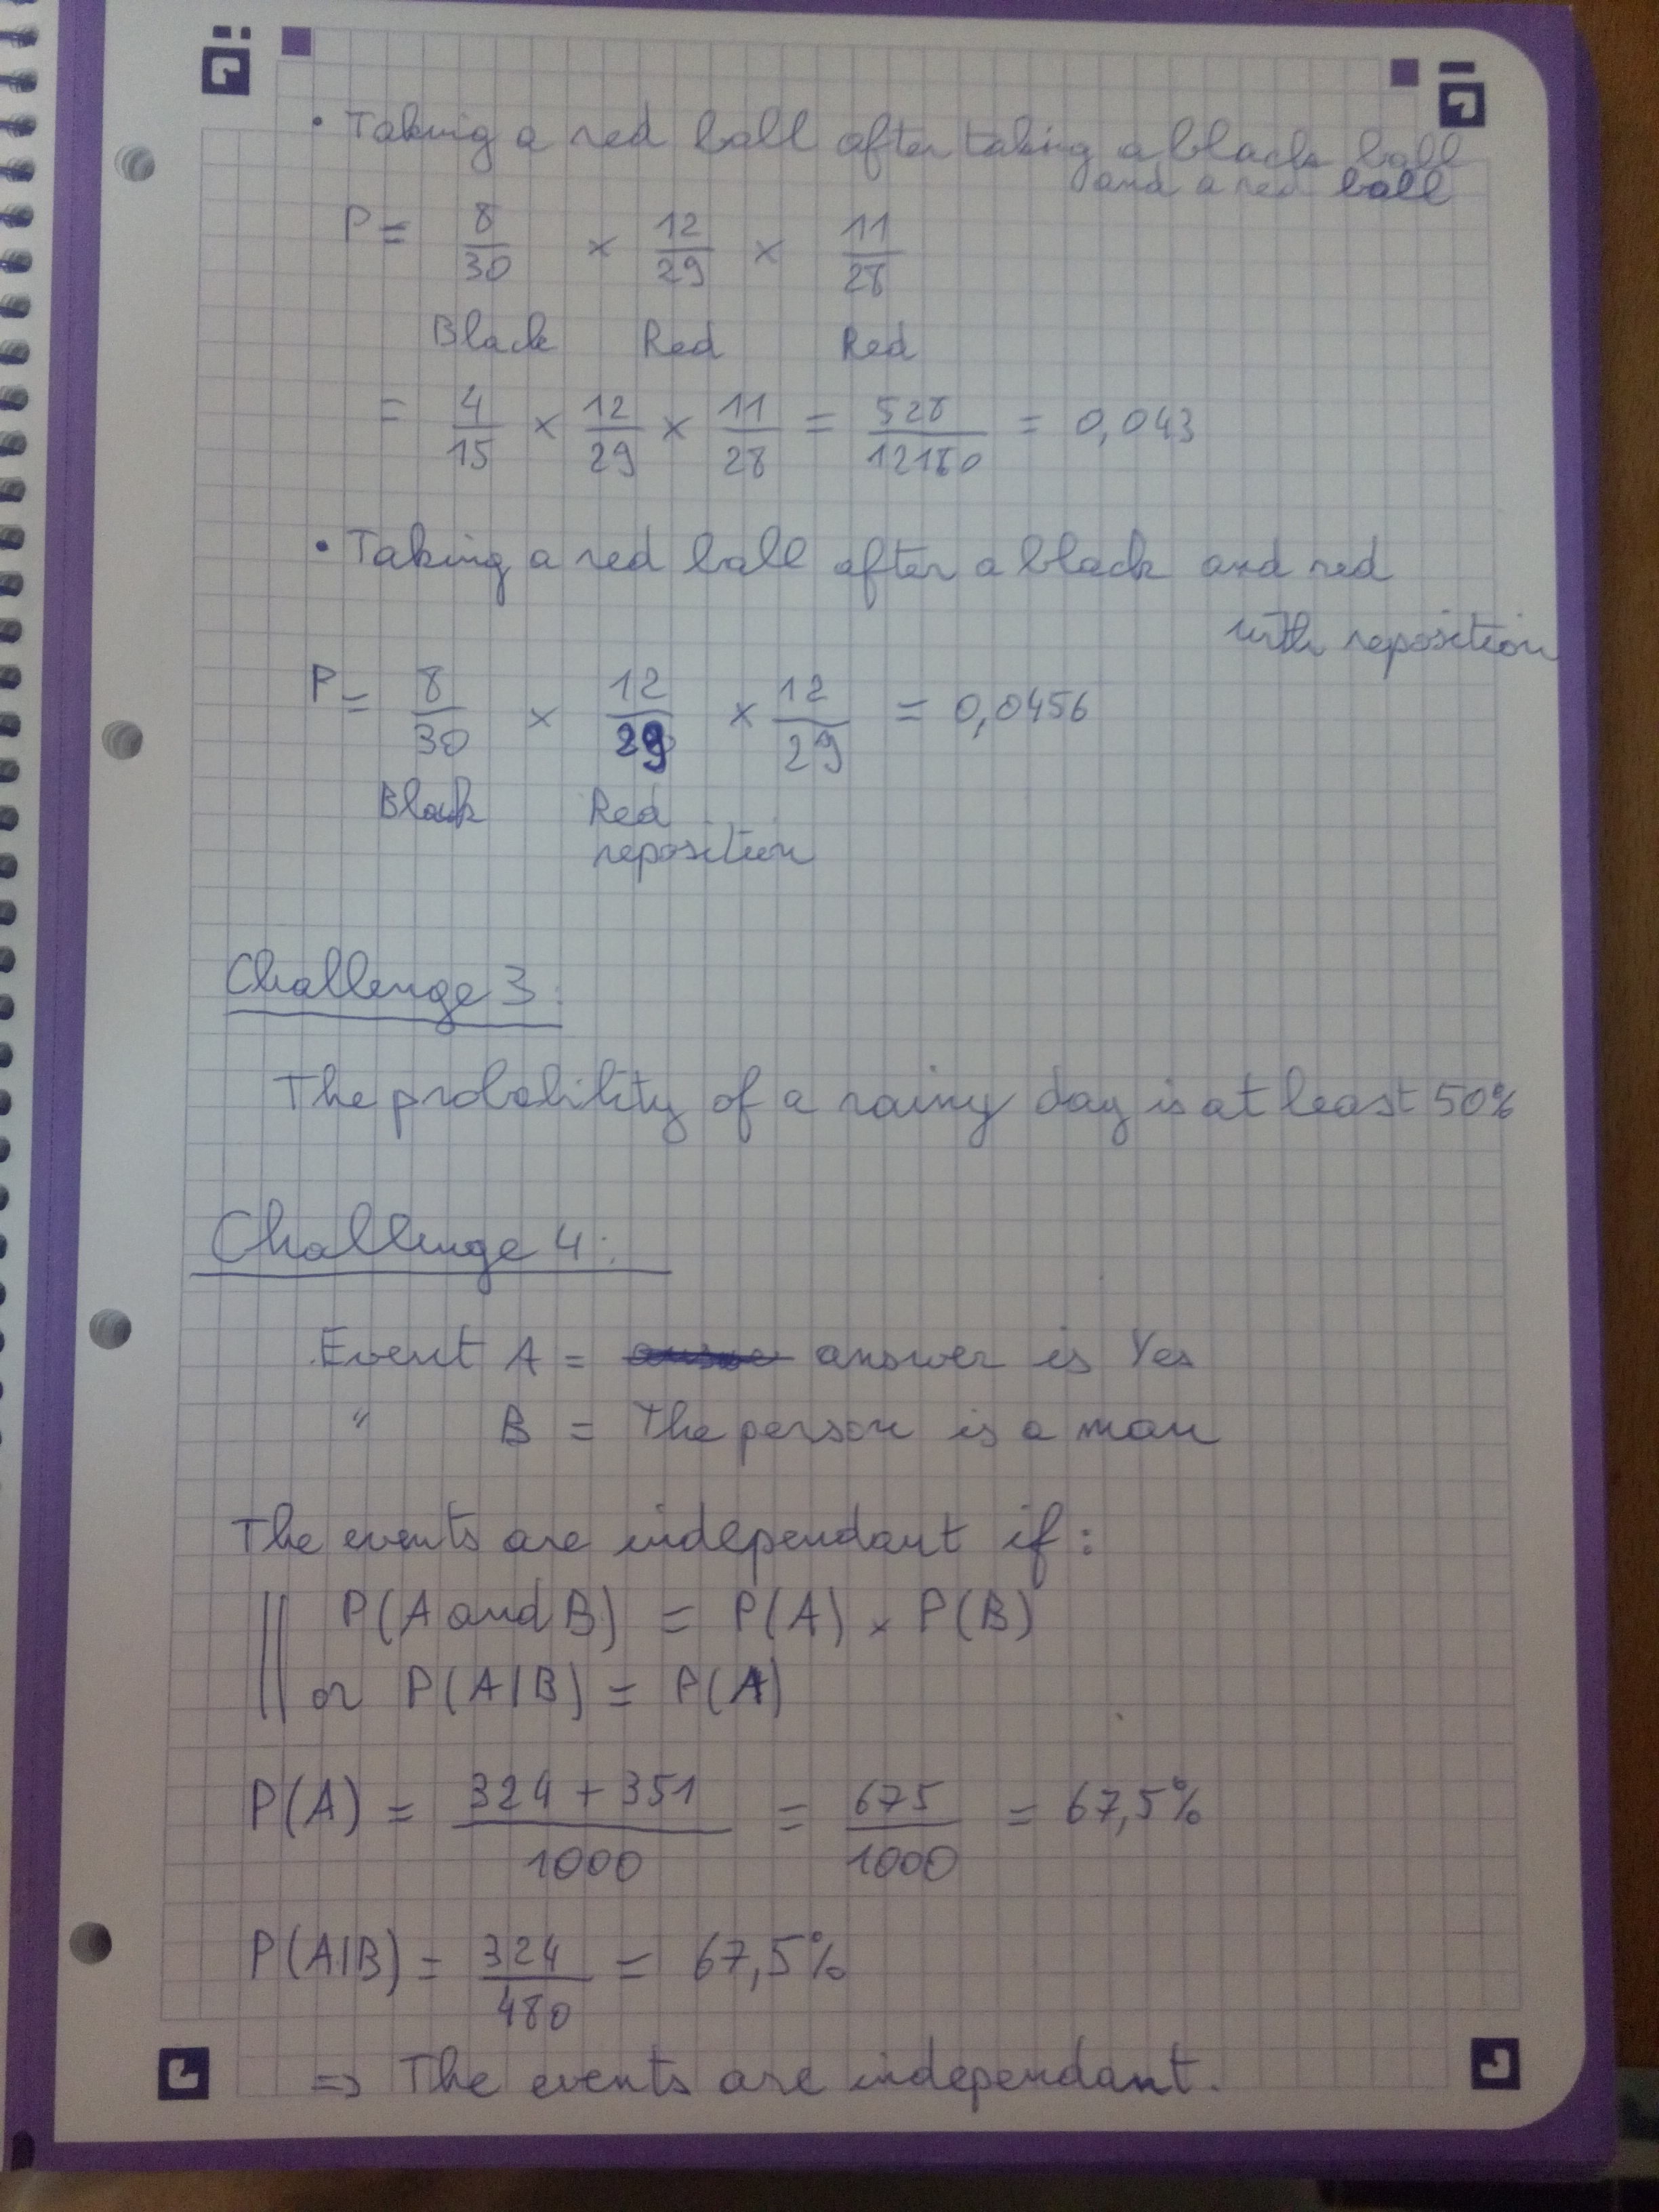 • Taking a red ball after taking a black ball
and a red ball
P = 8/30 × 12/29 × 11/28
Black Red Red
= 4/15 × 12/29 × 11/28 = 528/12180 = 0,043
• Taking a red ball after a black and red
with reposition
P = 8/30 × 12/29 × 12/29 = 0,0456
Black Red
reposition
Challenge 3:
The probability of a rainy day is at least 50%
Challenge 4:
Event A = answer is Yes
" B = The person is a man
The events are independant if:
P(A and B) = P(A) × P(B)
or P(A|B) = P(A)
P(A) = 324 + 351/1000 = 675/1000 = 67,5%
P(A|B) = 324/480 = 67,5%
=> The events are independant.